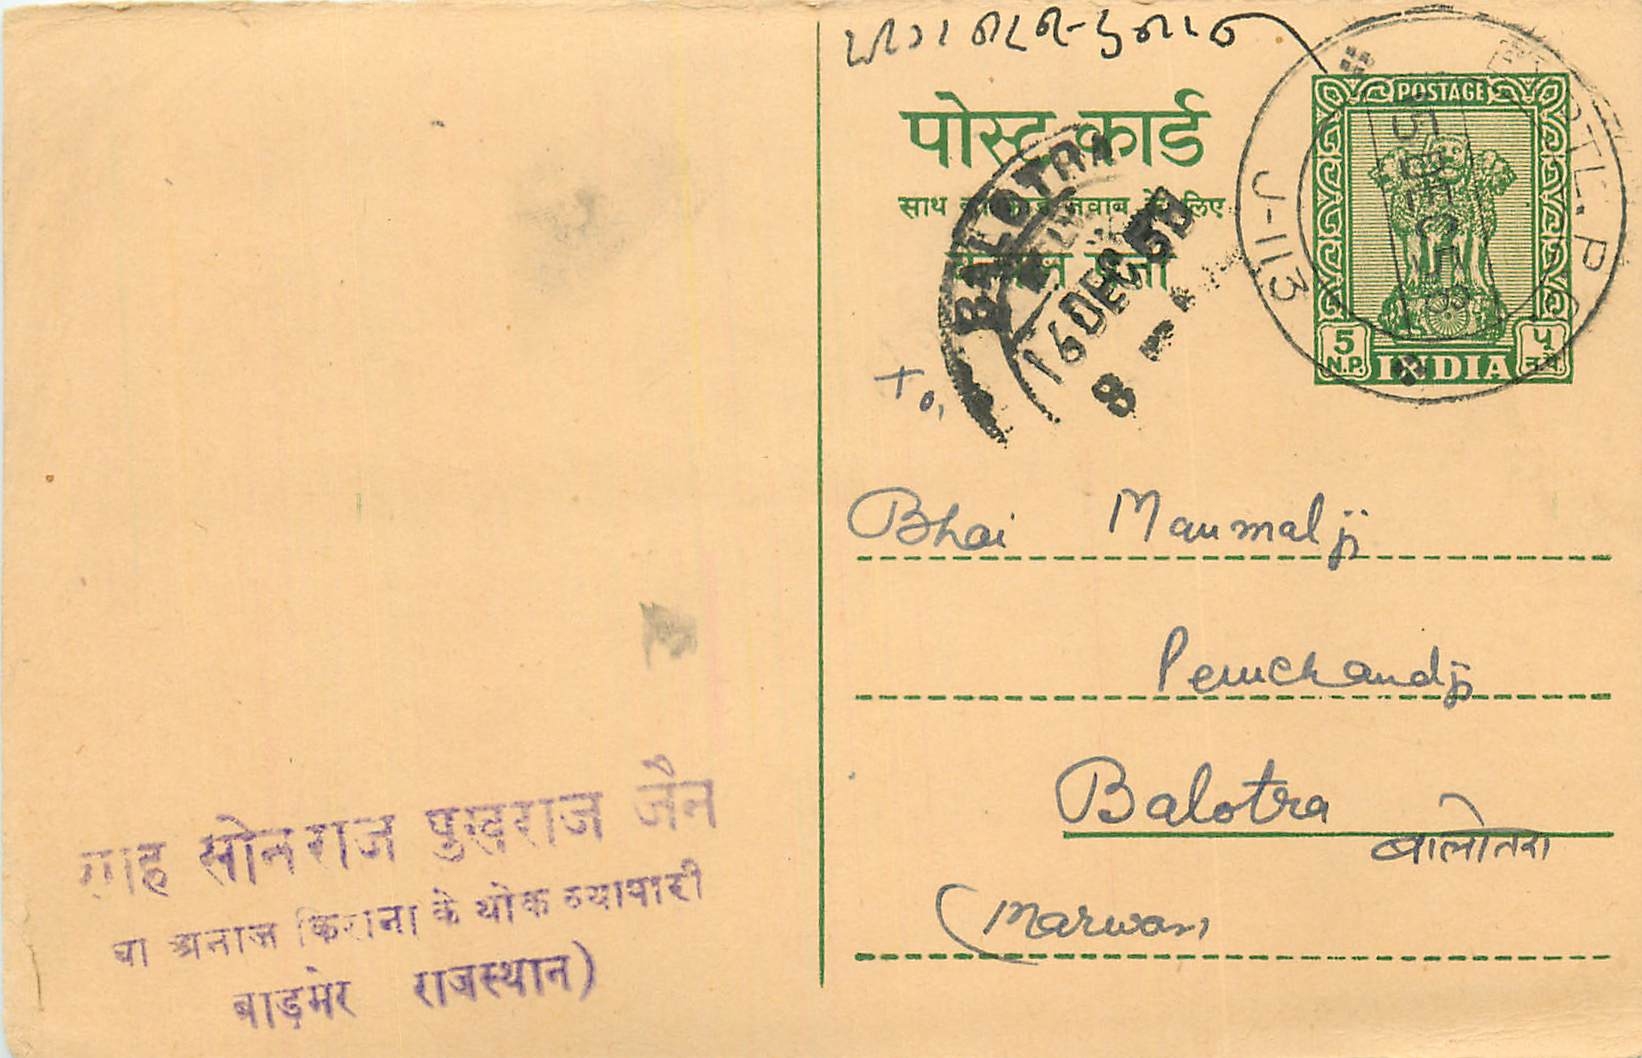 POSTAGE
पोस्ट कार्ड
साथ जवाब के लिए
5 N.P. INDIA ५ न.पै.
J-113
BALOTRA
16 DEC 59
8
To,
Bhai Manmalji
Pemchandji
Balotra
बालोतरा
(Marwar
शाह सोनराज पुखराज जैन
घी अनाज किराना के थोक व्यापारी
बाड़मेर राजस्थान)